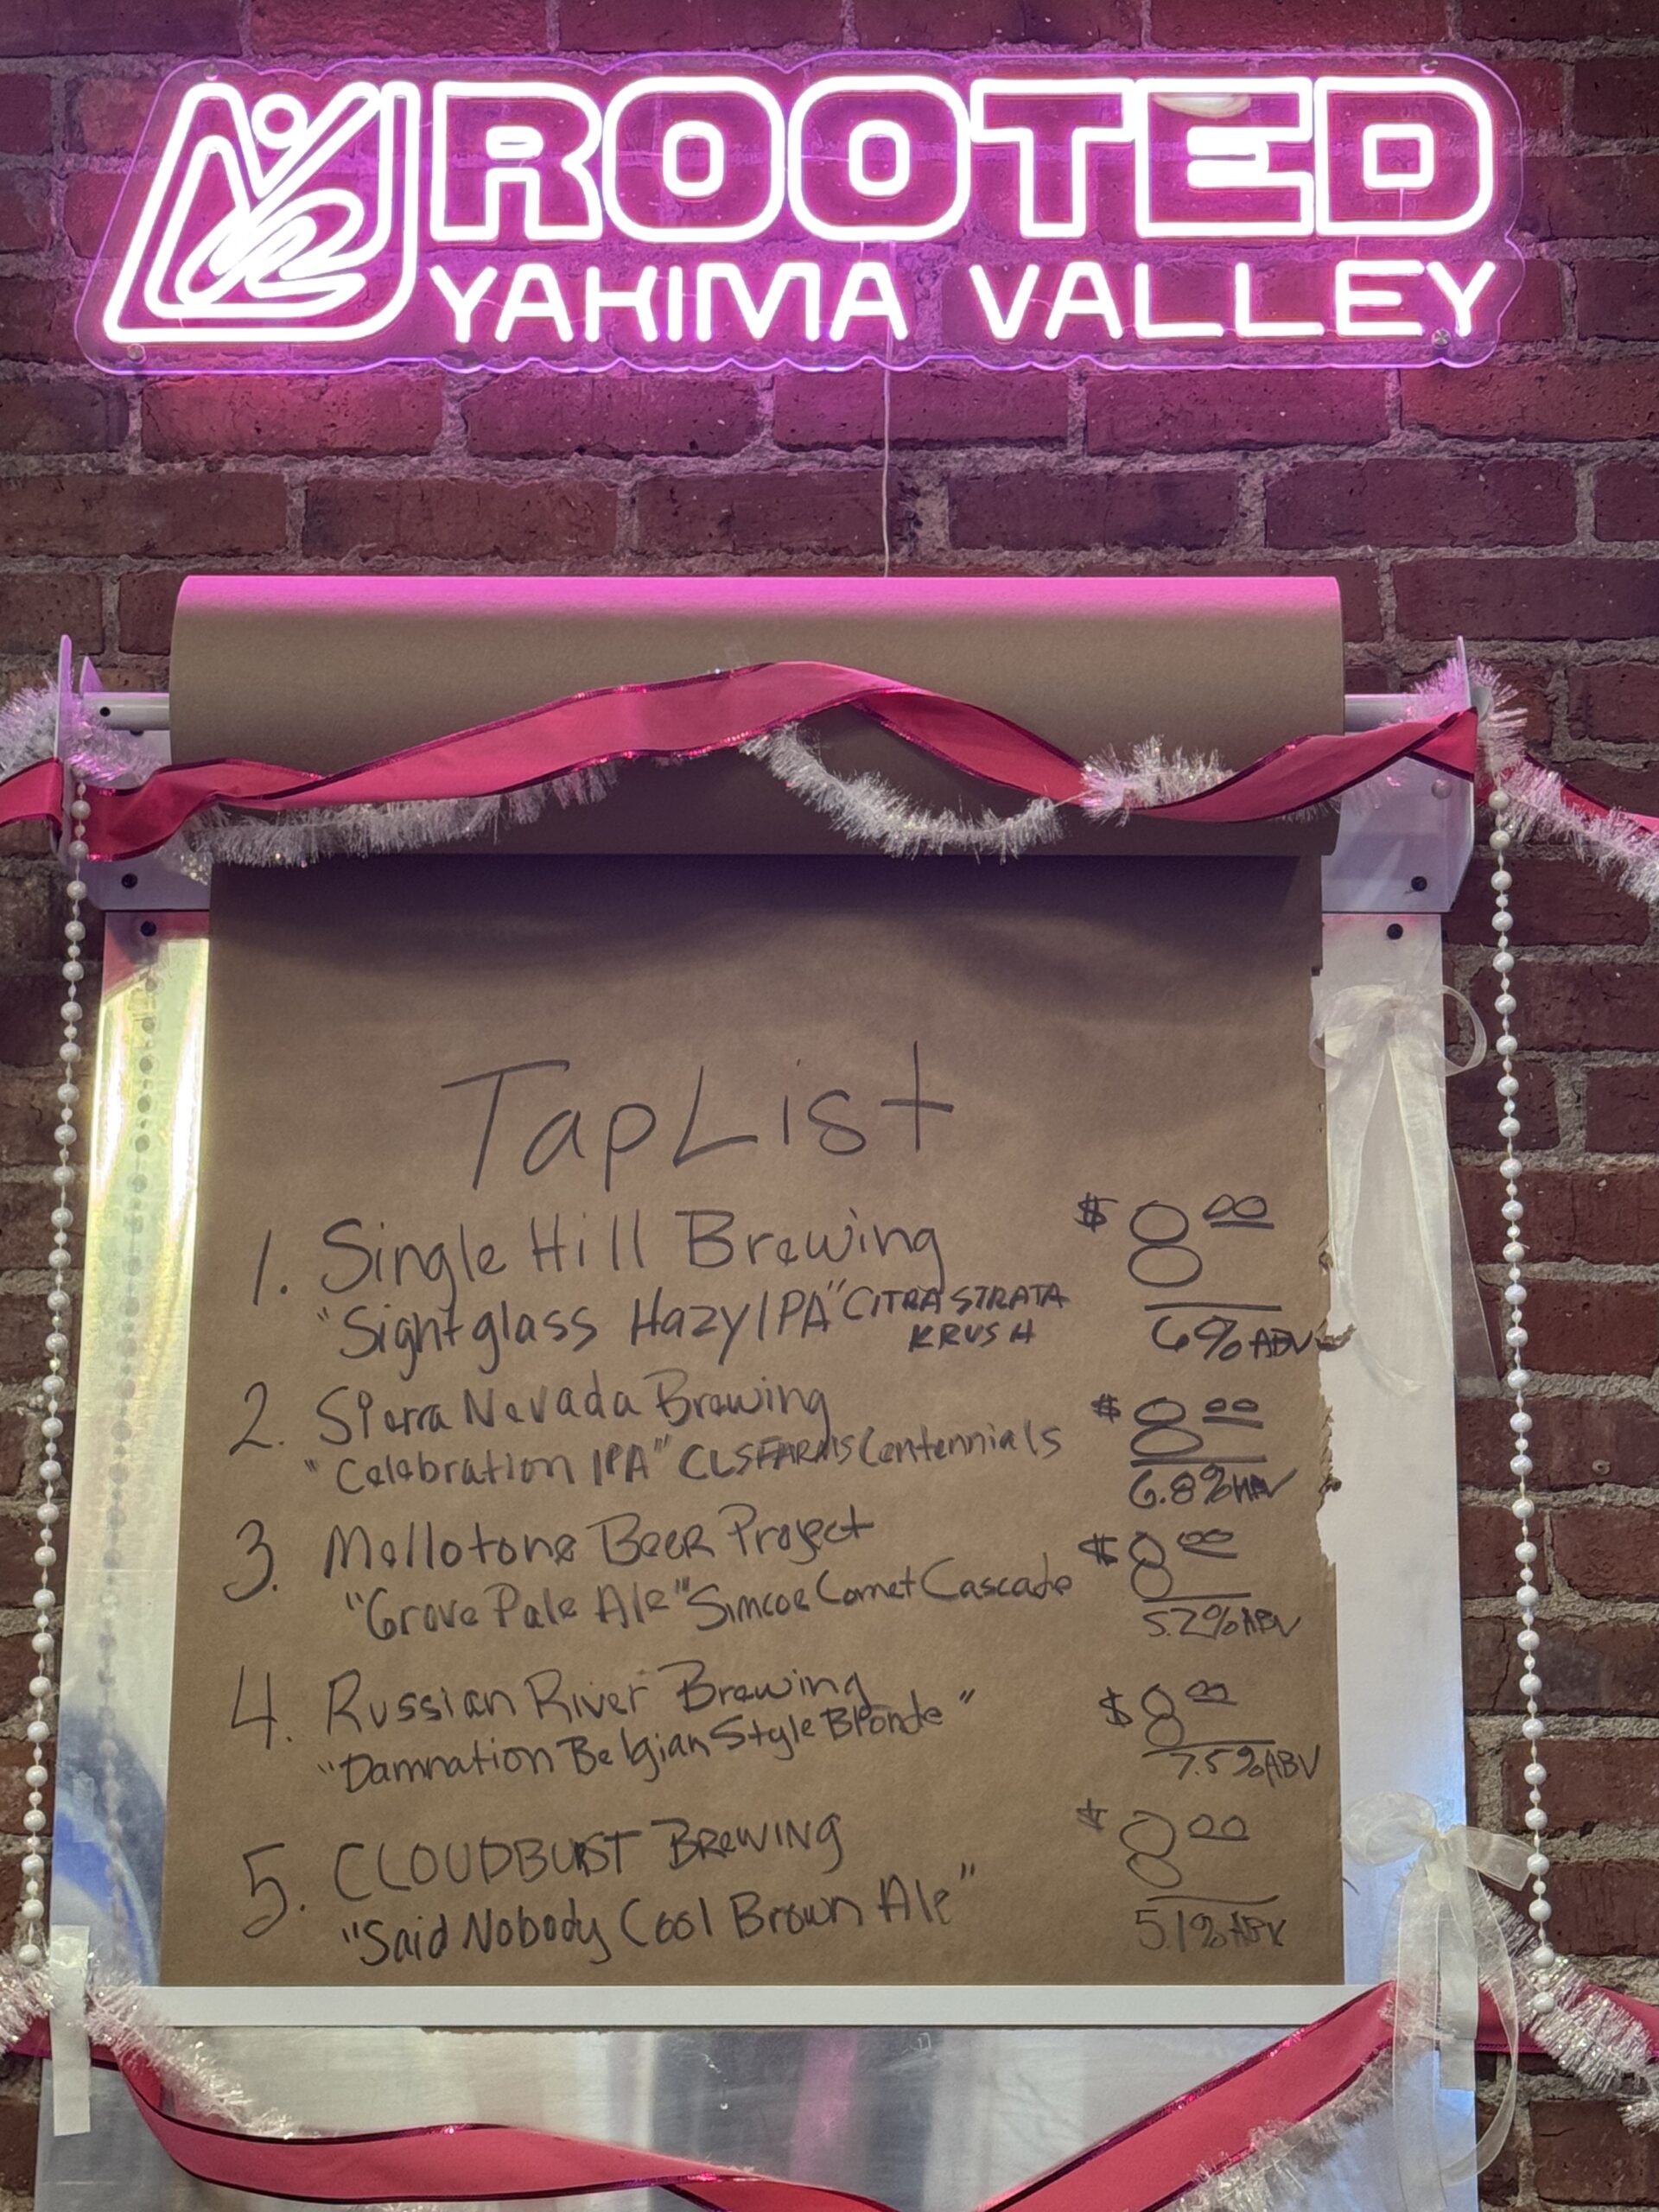 ROOTED
YAKIMA VALLEY
Tap List
1. Single Hill Brewing $8.00
"Sightglass Hazy IPA" CITRA STRATA
KRUSH
6% ABV
2. Sierra Nevada Brewing $8.00
"Celebration IPA" CLS FARMS Centennials
6.8% ABV
3. Mellotone Beer Project $8.00
"Grove Pale Ale" Simcoe Comet Cascade
5.2% ABV
4. Russian River Brewing $8.00
"Damnation Belgian Style Blonde"
7.5% ABV
5. CLOUDBURST BREWING $8.00
"Said Nobody Cool Brown Ale"
5.1% ABV